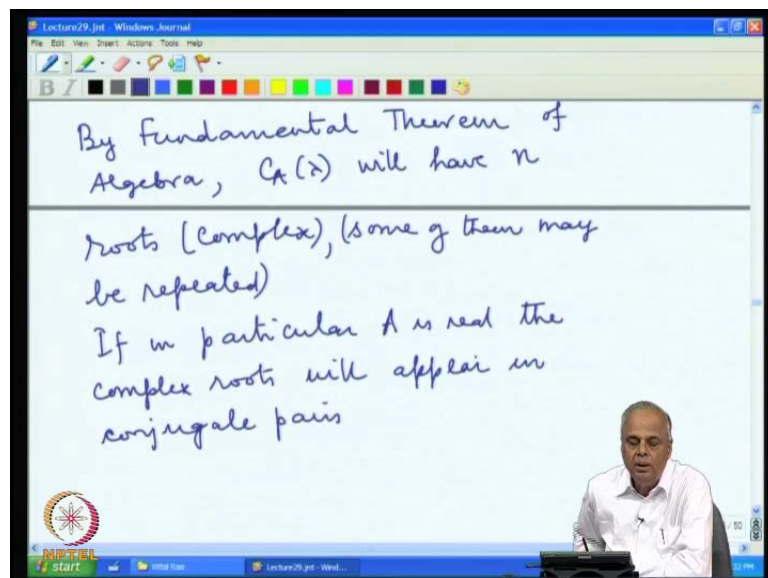 Lecture29.jnt - Windows Journal
File Edit View Insert Actions Tools Help
B I
By Fundamental Theorem of
Algebra, C_A(λ) will have n
roots (complex), (some of them may
be repeated)
If in particular A is real the
complex roots will appear in
conjugate pairs
/ 50
NPTEL
start Vittal Rao Lecture29.jnt - Wind...